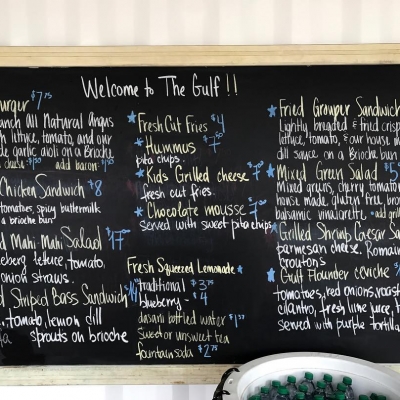 Welcome to The Gulf !!
urger $7.75
anch All Natural Angus
h lettuce, tomato, and our
de garlic aioli on a Brioche
add bacon
Chicken Sandwich $8
tomatoes, spicy buttermilk
a brioche bun
d Mahi-Mahi Salad $17
eberg lettuce, tomato,
onion straws.
d Striped Bass Sandwich
, tomato, lemon dill
sprouts on brioche
Fresh Cut Fries $4
Hummus $7.50
pita chips.
Kids Grilled cheese $7.00
fresh cut fries
Chocolate mousse $7.00
served with sweet pita chips
Fresh Squeezed Lemonade
traditional $3.75
blueberry - $4
dasani bottled water $1.50
Sweet or unsweet tea
fountain soda $2.75
Fried Grouper Sandwich
Lightly breaded & fried crisp
lettuce, tomato, & our house m
dill sauce on a Brioche bun
Mixed Green Salad $5
Mixed greens, cherry tomato
house made gluten free brown
balsamic vinaigrette. add gril
Grilled Shrimp Caesar Sa
parmesan cheese. Romain
croutons
Gulf Flounder ceviche $
tomatoes, red onions, roast
cilantro, fresh lime juice, f
served with purple tortilla